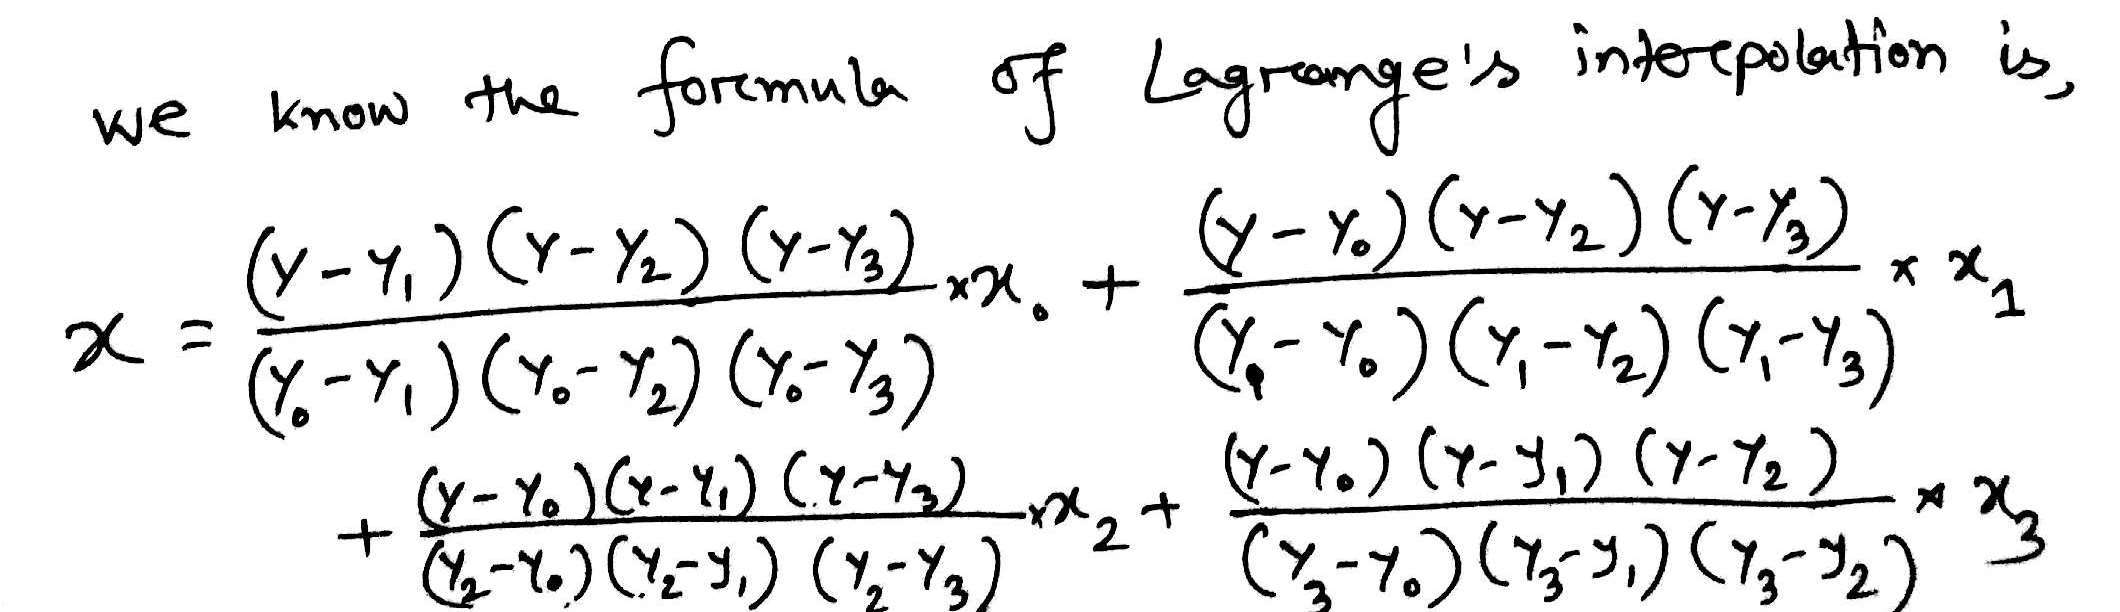 we know the formula of Lagrange's interpolation is,
x = \frac{(y-y_1)(y-y_2)(y-y_3)}{(y_0-y_1)(y_0-y_2)(y_0-y_3)} × x_0 + \frac{(y-y_0)(y-y_2)(y-y_3)}{(y_1-y_0)(y_1-y_2)(y_1-y_3)} × x_1
+ \frac{(y-y_0)(y-y_1)(y-y_3)}{(y_2-y_0)(y_2-y_1)(y_2-y_3)} × x_2 + \frac{(y-y_0)(y-y_1)(y-y_2)}{(y_3-y_0)(y_3-y_1)(y_3-y_2)} × x_3